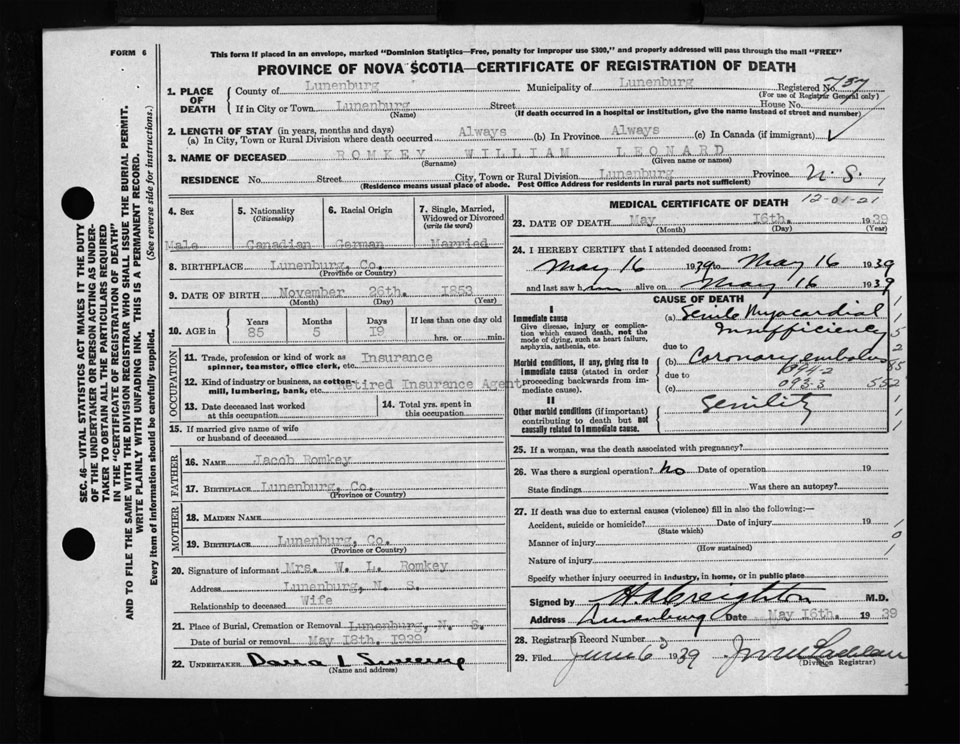 FORM 6
This form if placed in an envelope, marked "Dominion Statistics—Free, penalty for improper use $300," and properly addressed will pass through the mail "FREE"
PROVINCE OF NOVA SCOTIA—CERTIFICATE OF REGISTRATION OF DEATH
SEC. 46—VITAL STATISTICS ACT MAKES IT THE DUTY
OF THE UNDERTAKER OR PERSON ACTING AS UNDER-
TAKER TO OBTAIN ALL THE PARTICULARS REQUIRED
IN THE "CERTIFICATE OF REGISTRATION OF DEATH"
AND TO FILE THE SAME WITH THE DIVISION REGISTRAR WHO SHALL ISSUE THE BURIAL PERMIT.
WRITE PLAINLY WITH UNFADING INK. THIS IS A PERMANENT RECORD.
Every item of information should be carefully supplied. (See reverse side for instructions.)
1. PLACE OF DEATH
County of Lunenburg Municipality of Lunenburg Registered No. 737
(For use of Registrar General only)
If in City or Town Lunenburg Street House No.
(Name) (If death occurred in a hospital or institution, give the name instead of street and number)
2. LENGTH OF STAY (in years, months and days)
(a) In City, Town or Rural Division where death occurred Always (b) In Province Always (c) In Canada (if immigrant)
3. NAME OF DECEASED ROMKEY WILLIAM LEONARD
(Surname) (Given name or names)
RESIDENCE No. Street City, Town or Rural Division Lunenburg Province N. S.
(Residence means usual place of abode. Post Office Address for residents in rural parts not sufficient)
4. Sex 5. Nationality (Citizenship) 6. Racial Origin 7. Single, Married, Widowed or Divorced (write the word)
Male Canadian German Married
8. BIRTHPLACE Lunenburg, Co.
(Province or Country)
9. DATE OF BIRTH November 26th. 1853
(Month) (Day) (Year)
10. AGE in Years Months Days If less than one day old
85 5 19 hrs. or min.
OCCUPATION
11. Trade, profession or kind of work as spinner, teamster, office clerk, etc. Insurance
12. Kind of industry or business, as cotton-mill, lumbering, bank, etc. Retired Insurance Agent
13. Date deceased last worked at this occupation
14. Total yrs. spent in this occupation
15. If married give name of wife or husband of deceased
FATHER
16. NAME Jacob Romkey
17. BIRTHPLACE Lunenburg, Co.
(Province or Country)
MOTHER
18. MAIDEN NAME
19. BIRTHPLACE Lunenburg, Co.
(Province or Country)
20. Signature of informant Mrs. W. L. Romkey
Address Lunenburg, N. S.
Relationship to deceased Wife
21. Place of Burial, Cremation or Removal Lunenburg, N. S.
Date of burial or removal May 18th. 1939
22. UNDERTAKER Dana L Sweeny
(Name and address)
MEDICAL CERTIFICATE OF DEATH 12-01-21
23. DATE OF DEATH May 16th. 1939
(Month) (Day) (Year)
24. I HEREBY CERTIFY that I attended deceased from:
May 16 1939 to May 16 1939
and last saw him alive on May 16 1939
CAUSE OF DEATH
I
Immediate cause
Give disease, injury or complication which caused death, not the mode of dying, such as heart failure, asphyxia, asthenia, etc.
(a) Senile Myocardial Insufficiency
due to
Morbid conditions, if any, giving rise to immediate cause (stated in order proceeding backwards from immediate cause).
(b) Coronary embolus
due to 094-2
(c) 093-3 552
II
Other morbid conditions (if important) contributing to death but not causally related to immediate cause.
Senility
25. If a woman, was the death associated with pregnancy?
26. Was there a surgical operation? No Date of operation 19
State findings Was there an autopsy?
27. If death was due to external causes (violence) fill in also the following:—
Accident, suicide or homicide? Date of injury 19
(State which)
Manner of injury
(How sustained)
Nature of injury
Specify whether injury occurred in industry, in home, or in public place
Signed by H. A. Creighton M.D.
Address Lunenburg Date May 16th. 1939
28. Registrar's Record Number
29. Filed June 6 1939
(Division Registrar)